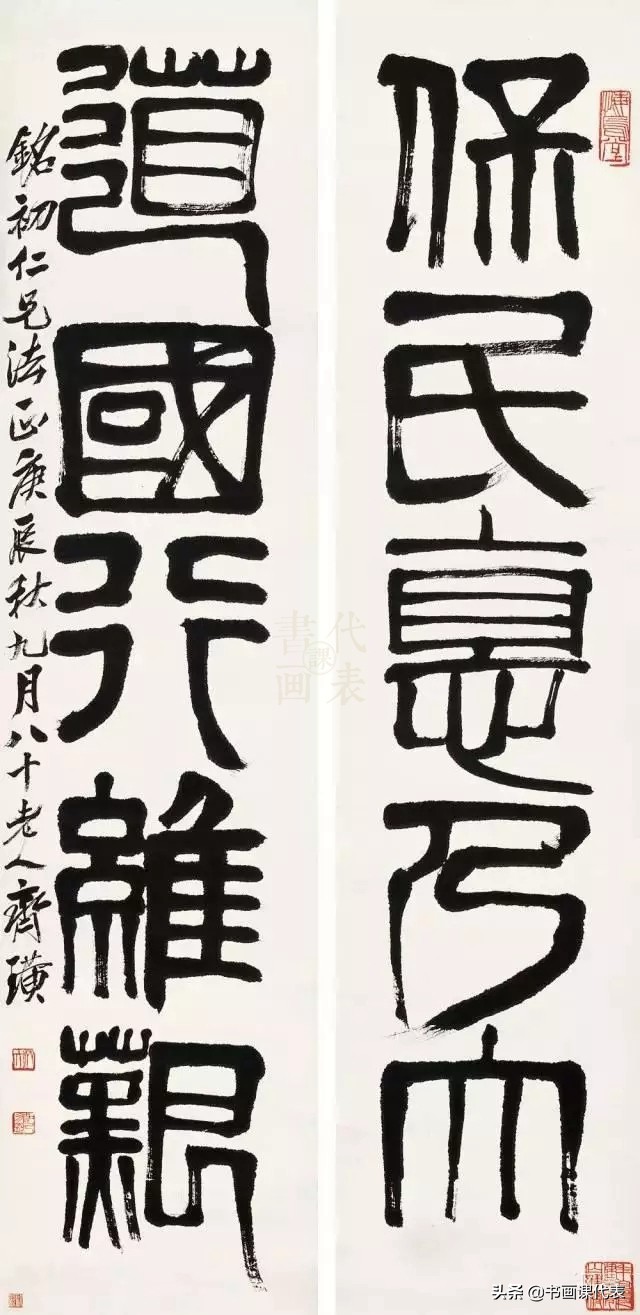 保民惪乃大
道國行維艱
銘初仁兄法正庚辰秋九月八十老人齊璜
書画課代表
头条 @书画课代表